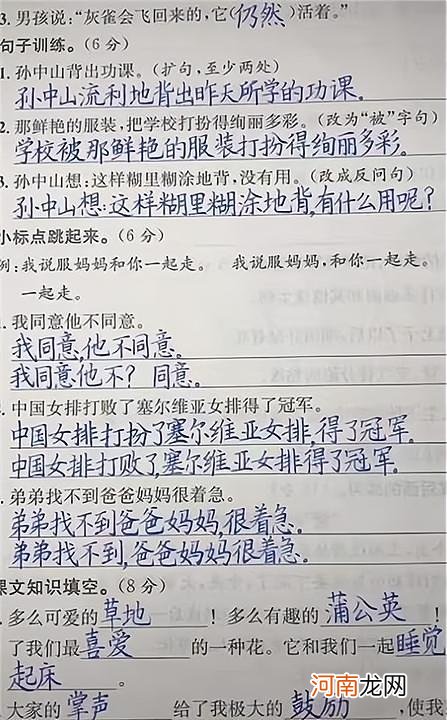 3. 男孩说：“灰雀会飞回来的，它(仍然)活着。”
句子训练。(6分)
1. 孙中山背出功课。(扩句，至少两处)
孙中山流利地背出昨天所学的功课.
2. 那鲜艳的服装，把学校打扮得绚丽多彩。(改为“被”字句)
学校被那鲜艳的服装打扮得绚丽多彩。
3. 孙中山想：这样糊里糊涂地背，没有用。(改成反问句)
孙中山想:这样糊里糊涂地背,有什么用呢?
小标点跳起来。(6分)
例：我说服妈妈和你一起走。 我说服妈妈，和你一起走。
一起走。
. 我同意他不同意。
我同意,他不同意。
我同意他不? 同意。
. 中国女排打败了塞尔维亚女排得了冠军。
中国女排打扮了塞尔维亚女排,得了冠军.
中国女排打败了,塞尔维亚女排得了冠军.
. 弟弟找不到爸爸妈妈很着急。
弟弟找不到爸爸妈妈,很着急.
弟弟找不到,爸爸妈妈很着急.
课文知识填空。(8分)
. 多么可爱的草地！多么有趣的蒲公英！
了我们最喜爱的一种花。它和我们一起睡觉
起床。
. 大家的掌声给了我极大的鼓励，使我
河南龙网